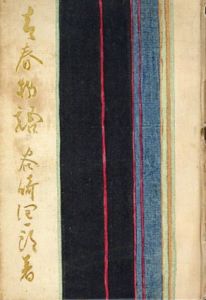 青春物語 谷崎潤一郎著